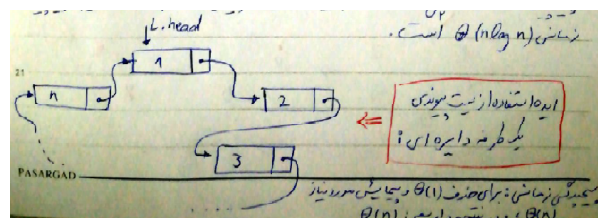 زمانی Θ(n log n) است.
L.head
1
n
2
3
ایده استفاده از لیست پیوندی
یک طرفه دایره ای :
21
PASARGAD
پیچیدگی زمانی : برای حذف Θ(1) و پیمایش مورد نیاز
Θ(n)